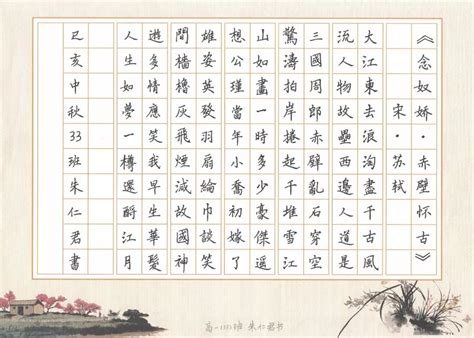 《念奴嬌·赤壁懷古》
宋·蘇軾
大江東去浪淘盡千古風
流人物故壘西邊人道是
三國周郎赤壁亂石穿空
驚濤拍岸捲起千堆雪江
山如畫一時多少豪傑遥
想公瑾當年小喬初嫁了
雄姿英發羽扇綸巾談笑
間檣櫓灰飛煙滅故國神
遊多情應笑我早生華髮
人生如夢一樽還酹江月
己亥中秋33班朱仁君書
高一(33)班 朱仁君书